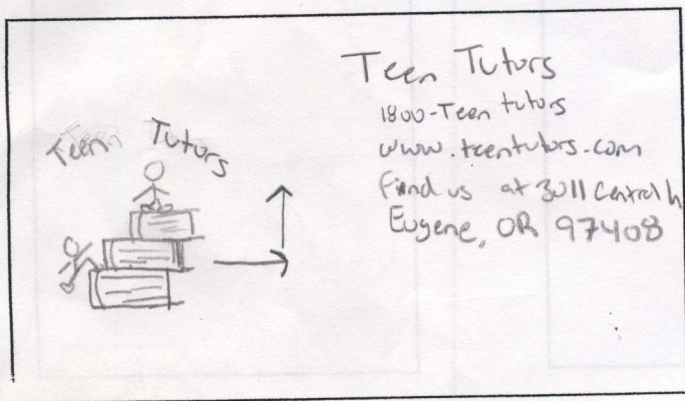 Teen Tutors
Teen Tutors
1800-Teen tutors
www.teentutors.com
Find us at 3011 Central
Eugene, OR 97408